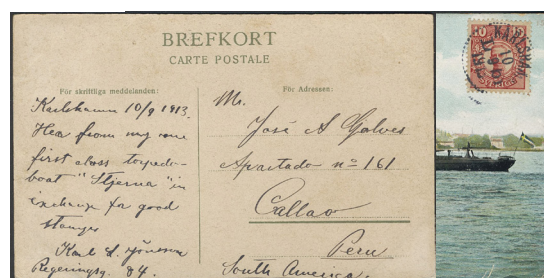 BREFKORT
CARTE POSTALE
För skriftliga meddelanden:
För Adressen:
Karlshamn 10/9 1913.
Hear from my one
first class torpedo-
boat "Stjerna" in
exchange for good
stamps
Karl L. Jönsson
Regeringsg. 84.
Mr.
José A Galves
Apartado nº 161
Callao
Peru
South America.
10